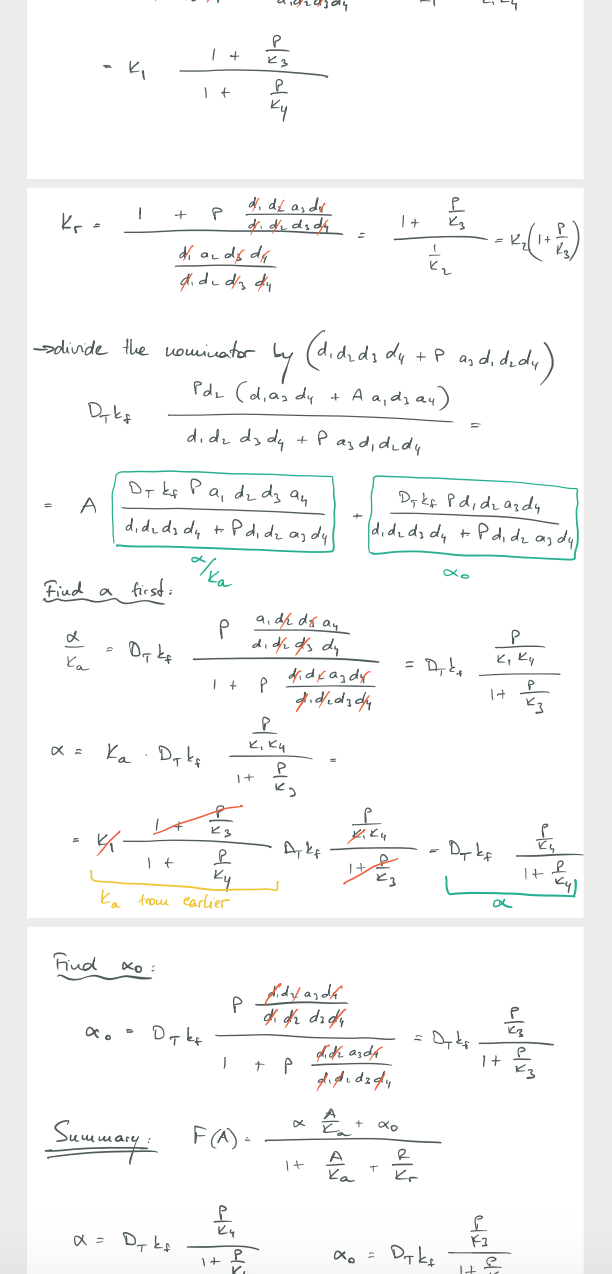 = K₁ (1 + P/K₃) / (1 + P/K₄)
Kr = (1 + P (d₁ d₂ a₃ d₄)/(d₁ d₂ d₃ d₄)) / ((d₁ a₂ d₃ d₄)/(d₁ d₂ d₃ d₄)) = (1 + P/K₃) / (1/K₂) = K₂(1 + P/K₃)
→ divide the nominator by (d₁d₂d₃ d₄ + P a₃ d₁ d₂ d₄)
D_T k_f (Pd₂ (d₁a₃ d₄ + A a₁ d₃ a₄)) / (d₁ d₂ d₃ d₄ + P a₃ d₁ d₂ d₄) =
= A (D_T k_f P a₁ d₂ d₃ a₄) / (d₁ d₂ d₃ d₄ + P d₁ d₂ a₃ d₄) + (D_T k_f P d₁ d₂ a₃ d₄) / (d₁ d₂ d₃ d₄ + P d₁ d₂ a₃ d₄)
α/Ka α₀
Find α first:
α/Ka = D_T k_f (P (a₁ d₂ d₃ a₄)/(d₁ d₂ d₃ d₄)) / (1 + P (d₁ d₂ a₃ d₄)/(d₁ d₂ d₃ d₄)) = D_T k_f (P/(K₁ K₄)) / (1 + P/K₃)
α = Ka · D_T k_f (P/(K₁ K₄)) / (1 + P/K₃) =
= K₁ (1 + P/K₃) / (1 + P/K₄) D_T k_f (P/(K₁ K₄)) / (1 + P/K₃) = D_T k_f (P/K₄) / (1 + P/K₄)
Ka from earlier α
Find α₀:
α₀ = D_T k_f (P (d₁ d₂ a₃ d₄)/(d₁ d₂ d₃ d₄)) / (1 + P (d₁ d₂ a₃ d₄)/(d₁ d₂ d₃ d₄)) = D_T k_f (P/K₃) / (1 + P/K₃)
Summary: F(A) = (α A/Ka + α₀) / (1 + A/Ka + R/Kr)
α = D_T k_f (P/K₄) / (1 + P/K₄) α₀ = D_T k_f (P/K₃) / (1 + P/K